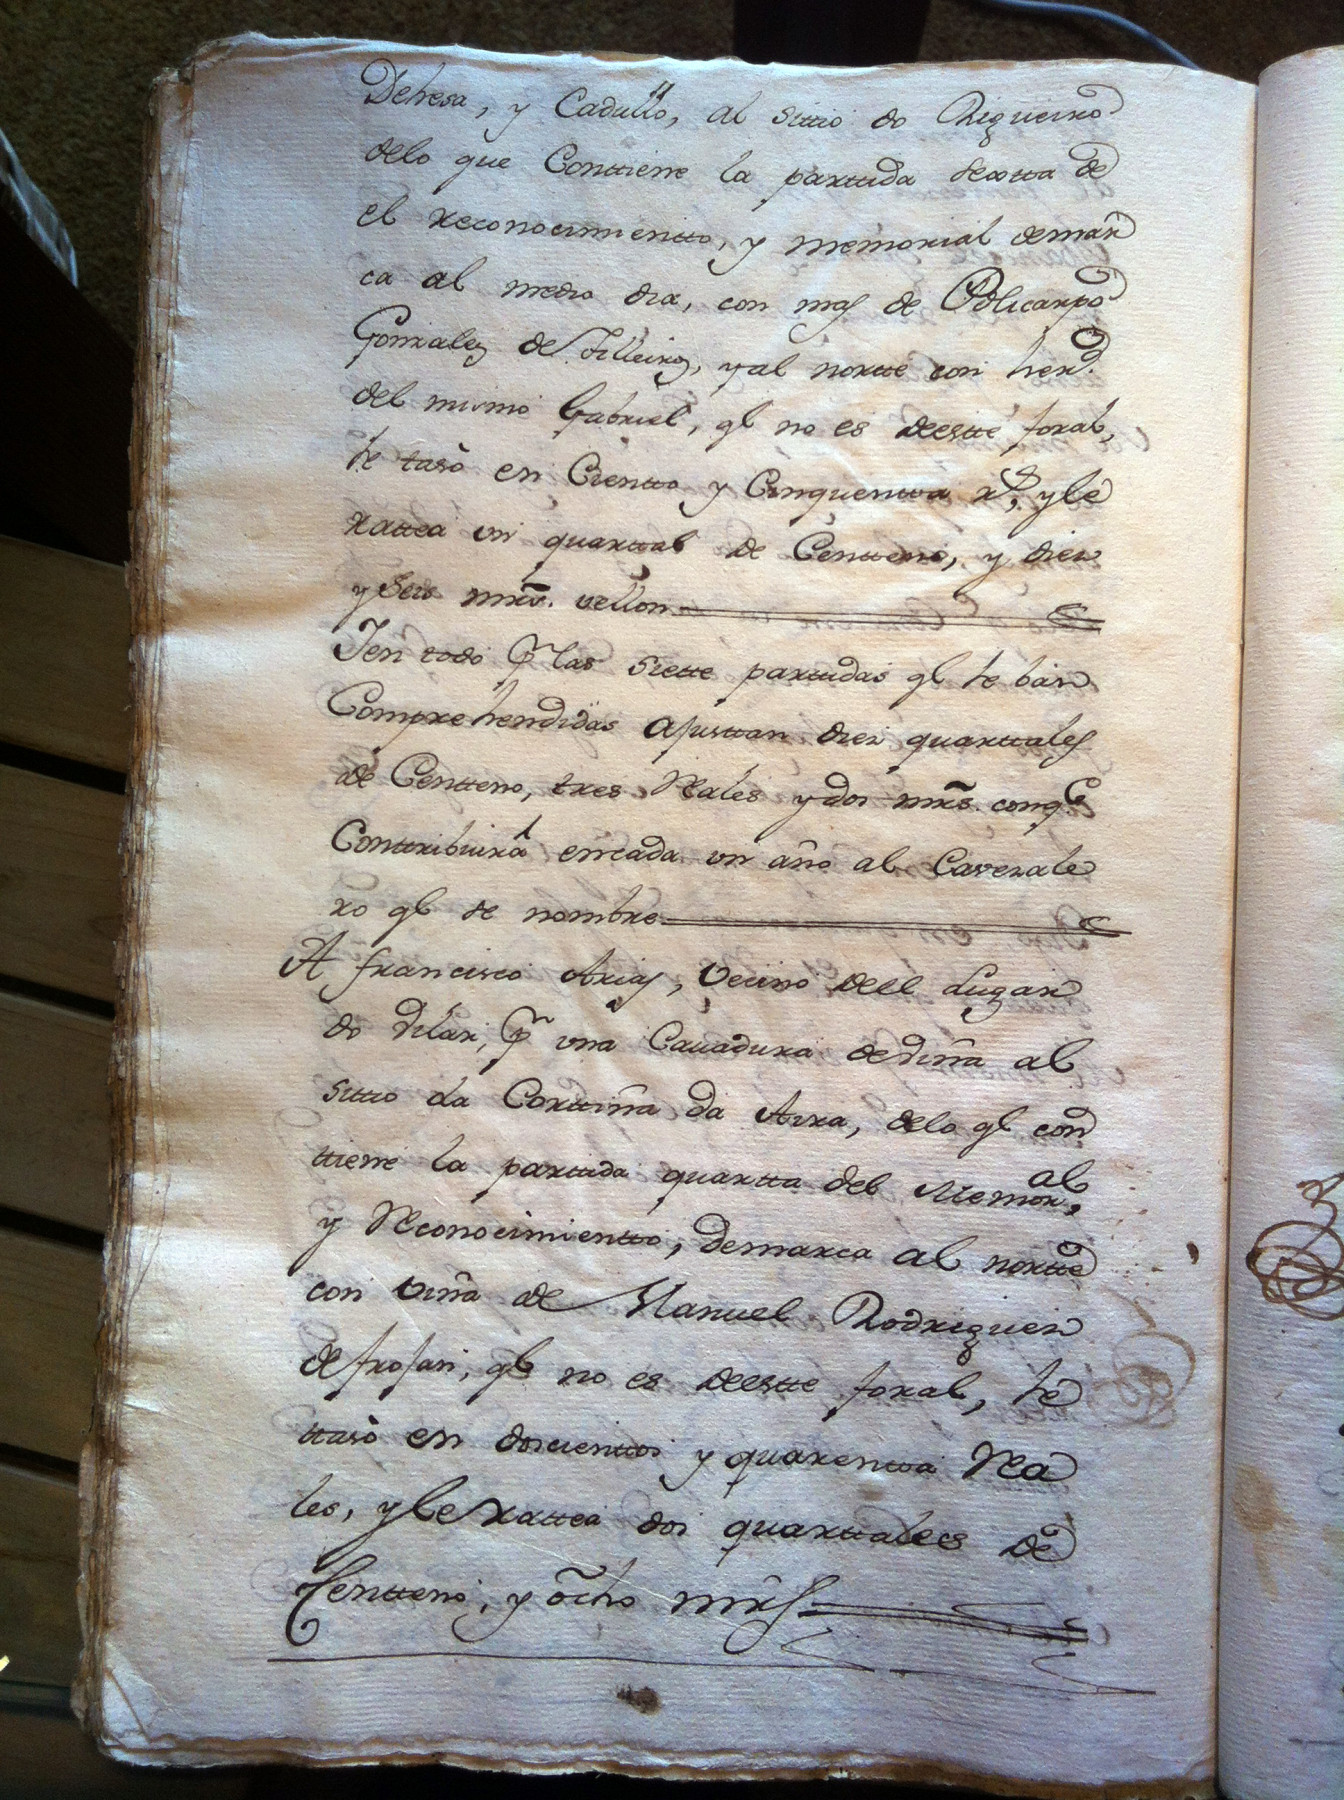 Dehesa, y Cadullo, al sittio do Rigueiro
delo que Conttiene la parttida sextta de
el reconocimientto, y memorial demar
ca al medio dia, con mas de Policarpo
Gonzalez de filleiros, y al nortte con hered.
del mismo Gabriel, qe no es deestte foral,
se tasò en Cientto y Cinquentta rs, y le
rattea un quarttal de Centteno, y diez
y seis mrs. vellon
I en todo pr las siette parttidas qe se bàn
Comprehendidas ajusttan diez quarttales
de Centteno, tres Reales y dos mrs. conqe
Conttribuirà encada un año al Cavezale
ro qe se nombre
A francisco Arias, Vecino deel Lugar
do Vilar, pr una Cauadura deviña al
sitio da Corttiña da Aira, delo qe con
ttiene la parttida quartta del Memoral,
y Reconocimientto, demarca al nortte
con viña de Manuel Rodriguez
de frojan, qe no es deestte foral, se
ttasò en doscienttos y quarentta Rea
les, y le rattea dos quarttales de
Centteno, y ocho mrs